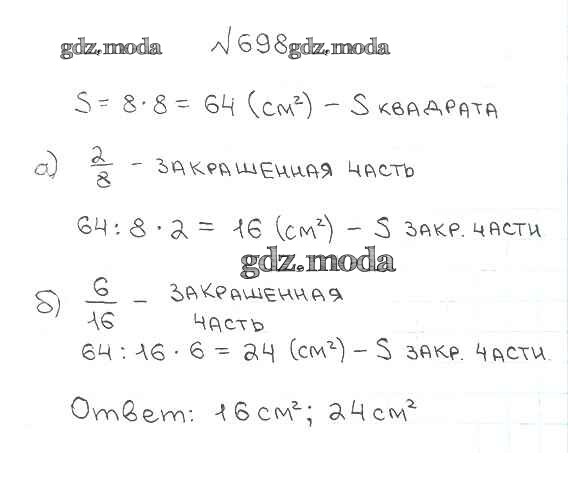 gdz.moda №698 gdz.moda
S = 8 · 8 = 64 (см²) – S КВАДРАТА
а) 2/8 – ЗАКРАШЕННАЯ ЧАСТЬ
64 : 8 · 2 = 16 (см²) – S ЗАКР. ЧАСТИ
gdz.moda
б) 6/16 – ЗАКРАШЕННАЯ
ЧАСТЬ
64 : 16 · 6 = 24 (см²) – S ЗАКР. ЧАСТИ.
Ответ: 16 см²; 24 см²